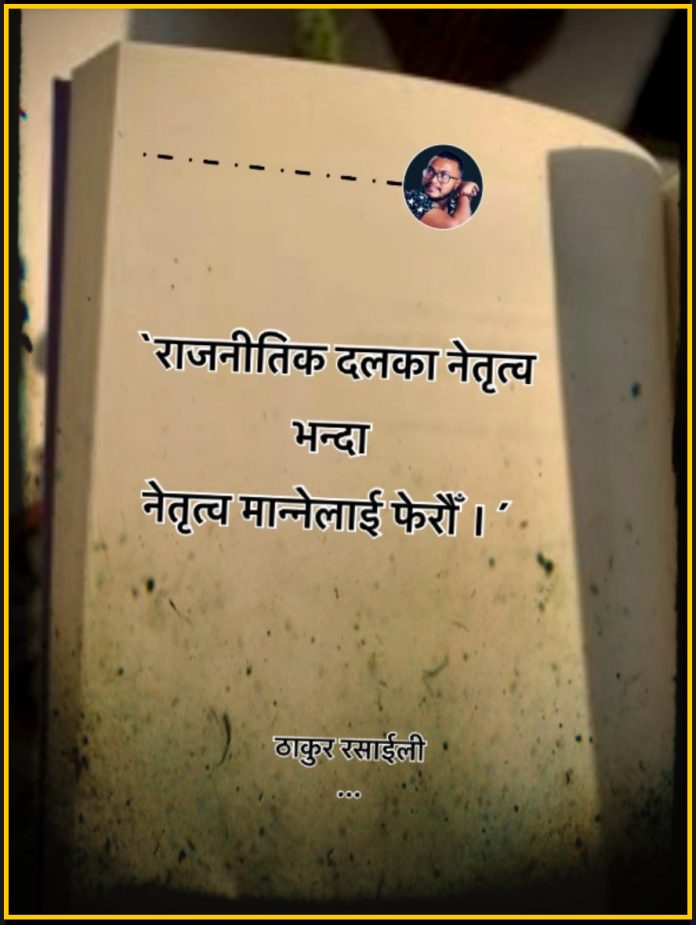 `राजनीतिक दलका नेतृत्व
भन्दा
नेतृत्व मान्नेलाई फेरौँ । ´
ठाकुर रसाईली
...